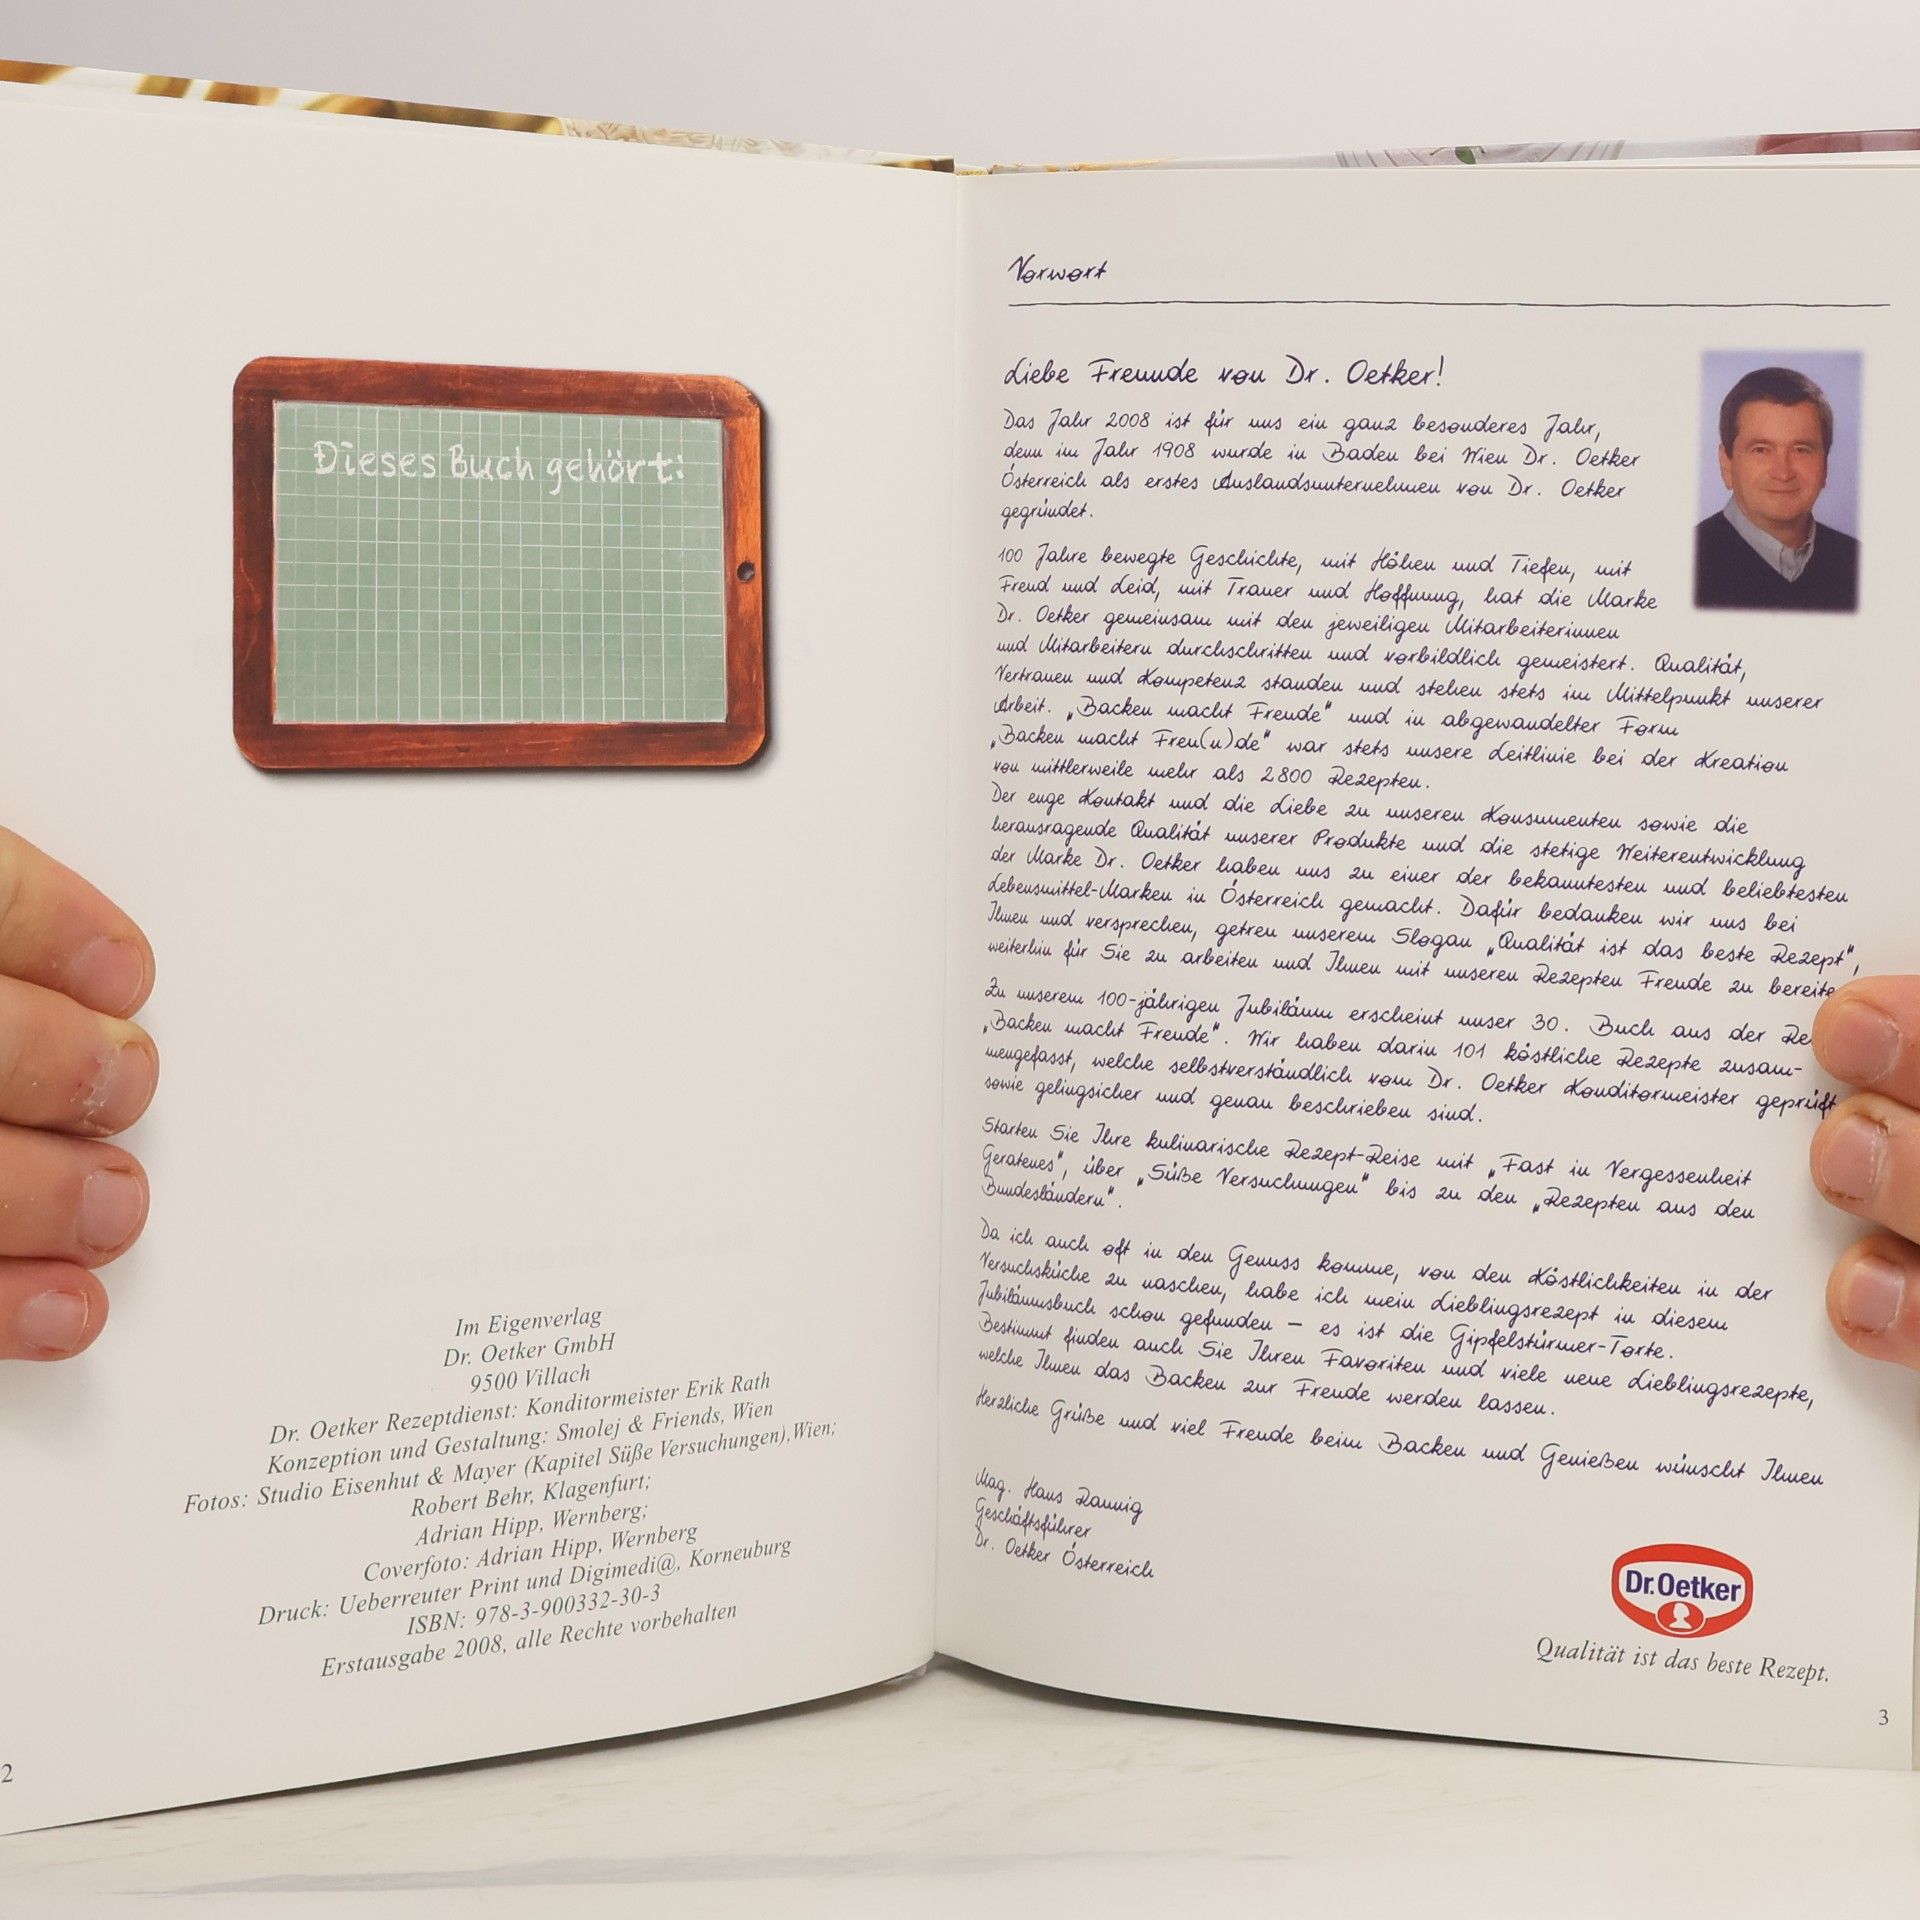 Dieses Buch gehört:
Im Eigenverlag
Dr. Oetker GmbH
9500 Villach
Dr. Oetker Rezeptdienst: Konditormeister Erik Rath
Konzeption und Gestaltung: Smolej & Friends, Wien
Fotos: Studio Eisenhut & Mayer (Kapitel Süße Versuchungen),Wien;
Robert Behr, Klagenfurt;
Adrian Hipp, Wernberg;
Coverfoto: Adrian Hipp, Wernberg
Druck: Ueberreuter Print und Digimedi@, Korneuburg
ISBN: 978-3-900332-30-3
Erstausgabe 2008, alle Rechte vorbehalten
2
Vorwort
Liebe Freunde von Dr. Oetker!
Das Jahr 2008 ist für uns ein ganz besonderes Jahr,
denn im Jahr 1908 wurde in Baden bei Wien Dr. Oetker
Österreich als erstes Auslandsunternehmen von Dr. Oetker
gegründet.
100 Jahre bewegte Geschichte, mit Höhen und Tiefen, mit
Freud und Leid, mit Trauer und Hoffnung, hat die Marke
Dr. Oetker gemeinsam mit den jeweiligen Mitarbeiterinnen
und Mitarbeitern durchschritten und vorbildlich gemeistert. Qualität,
Vertrauen und Kompetenz standen und stehen stets im Mittelpunkt unserer
Arbeit. „Backen macht Freude" und in abgewandelter Form
„Backen macht Freu(n)de" war stets unsere Leitlinie bei der Kreation
von mittlerweile mehr als 2800 Rezepten.
Der enge Kontakt und die Liebe zu unseren Konsumenten sowie die
herausragende Qualität unserer Produkte und die stetige Weiterentwicklung
der Marke Dr. Oetker haben uns zu einer der bekanntesten und beliebtesten
Lebensmittel-Marken in Österreich gemacht. Dafür bedanken wir uns bei
Ihnen und versprechen, getreu unserem Slogan „Qualität ist das beste Rezept",
weiterhin für Sie zu arbeiten und Ihnen mit unseren Rezepten Freude zu bereite
Zu unserem 100-jährigen Jubiläum erscheint unser 30. Buch aus der Re
„Backen macht Freude". Wir haben darin 101 köstliche Rezepte zusam-
mengefasst, welche selbstverständlich vom Dr. Oetker Konditormeister geprüft
sowie gelingsicher und genau beschrieben sind.
Starten Sie Ihre kulinarische Rezept-Reise mit „Fast in Vergessenheit
Geratenes", über „Süße Versuchungen" bis zu den „Rezepten aus den
Bundesländern".
Da ich auch oft in den Genuss komme, von den Köstlichkeiten in der
Versuchsküche zu naschen, habe ich mein Lieblingsrezept in diesem
Jubiläumsbuch schon gefunden – es ist die Gipfelstürmer-Torte.
Bestimmt finden auch Sie Ihren Favoriten und viele neue Lieblingsrezepte,
welche Ihnen das Backen zur Freude werden lassen.
Herzliche Grüße und viel Freude beim Backen und Genießen wünscht Ihnen
Mag. Hans Rannig
Geschäftsführer
Dr. Oetker Österreich
Dr. Oetker
Qualität ist das beste Rezept.
3